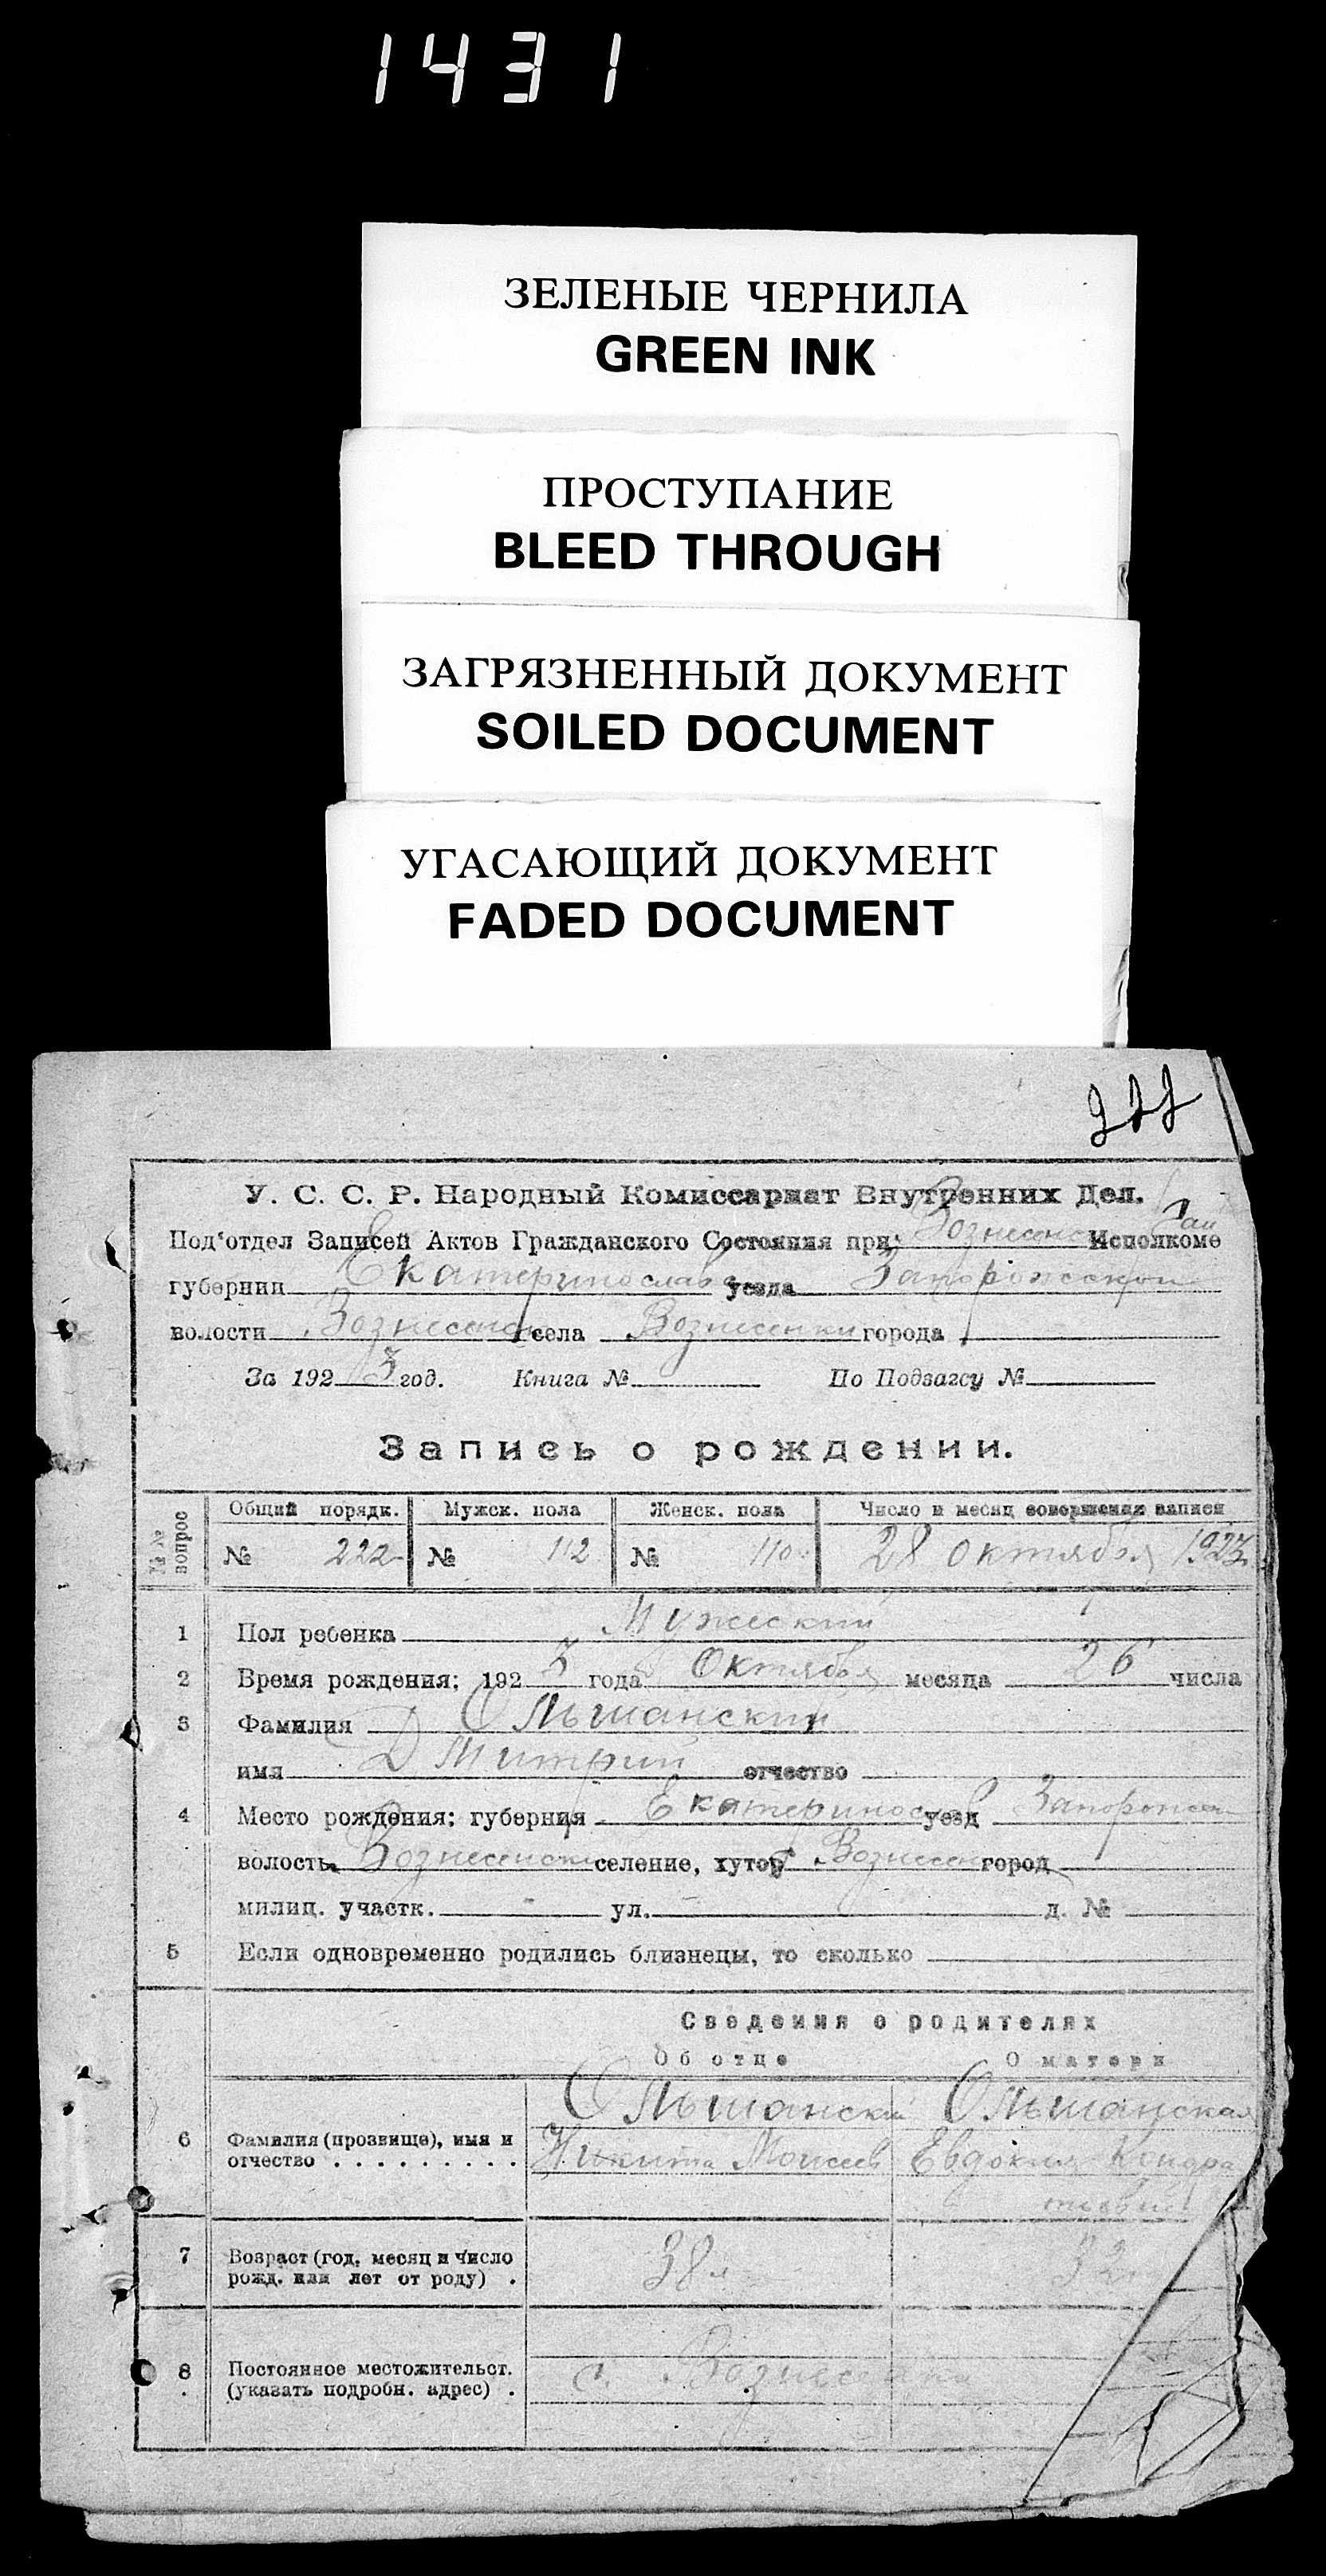 1431
ЗЕЛЕНЫЕ ЧЕРНИЛА
GREEN INK
ПРОСТУПАНИЕ
BLEED THROUGH
ЗАГРЯЗНЕННЫЙ ДОКУМЕНТ
SOILED DOCUMENT
УГАСАЮЩИЙ ДОКУМЕНТ
FADED DOCUMENT
222
У. С. С. Р. Народный Комиссариат Внутренних Дел.
Под'отдел Записей Актов Гражданского Состояния при Вознесенс Рай Исполкоме
губернии Екатеринослав уезда Запорожской
волости Вознесенс села Вознесенки города
За 1923 год. Книга № По Подзагсу №
Запись о рождении.
№№ вопрос Общий порядк. Мужск. пола Женск. пола Число и месяц совершения записи
№ 222 № 112 № 110 28 Октября 1923
1 Пол ребенка Мужеский
2 Время рождения: 1923 года Октября месяца 26 числа
3 Фамилия Ольшанский
имя Дмитрий отчество
4 Место рождения: губерния Екатеринос уезд Запорожск
волость Вознесенск селение, хутор Вознесен город
милиц. участк. - ул. д. №
5 Если одновременно родились близнецы, то сколько
Сведения о родителях
Об отце О матери
Ольшанский Ольшанская
6 Фамилия (прозвище), имя и Никита Моисеев Евдокия Кондра
отчество . . . . . . . . .
7 Возраст (год, месяц и число 38 л 32
рожд. или лет от роду) .
8 Постоянное местожительст. с. Вознесенка
(указать подробн. адрес) .